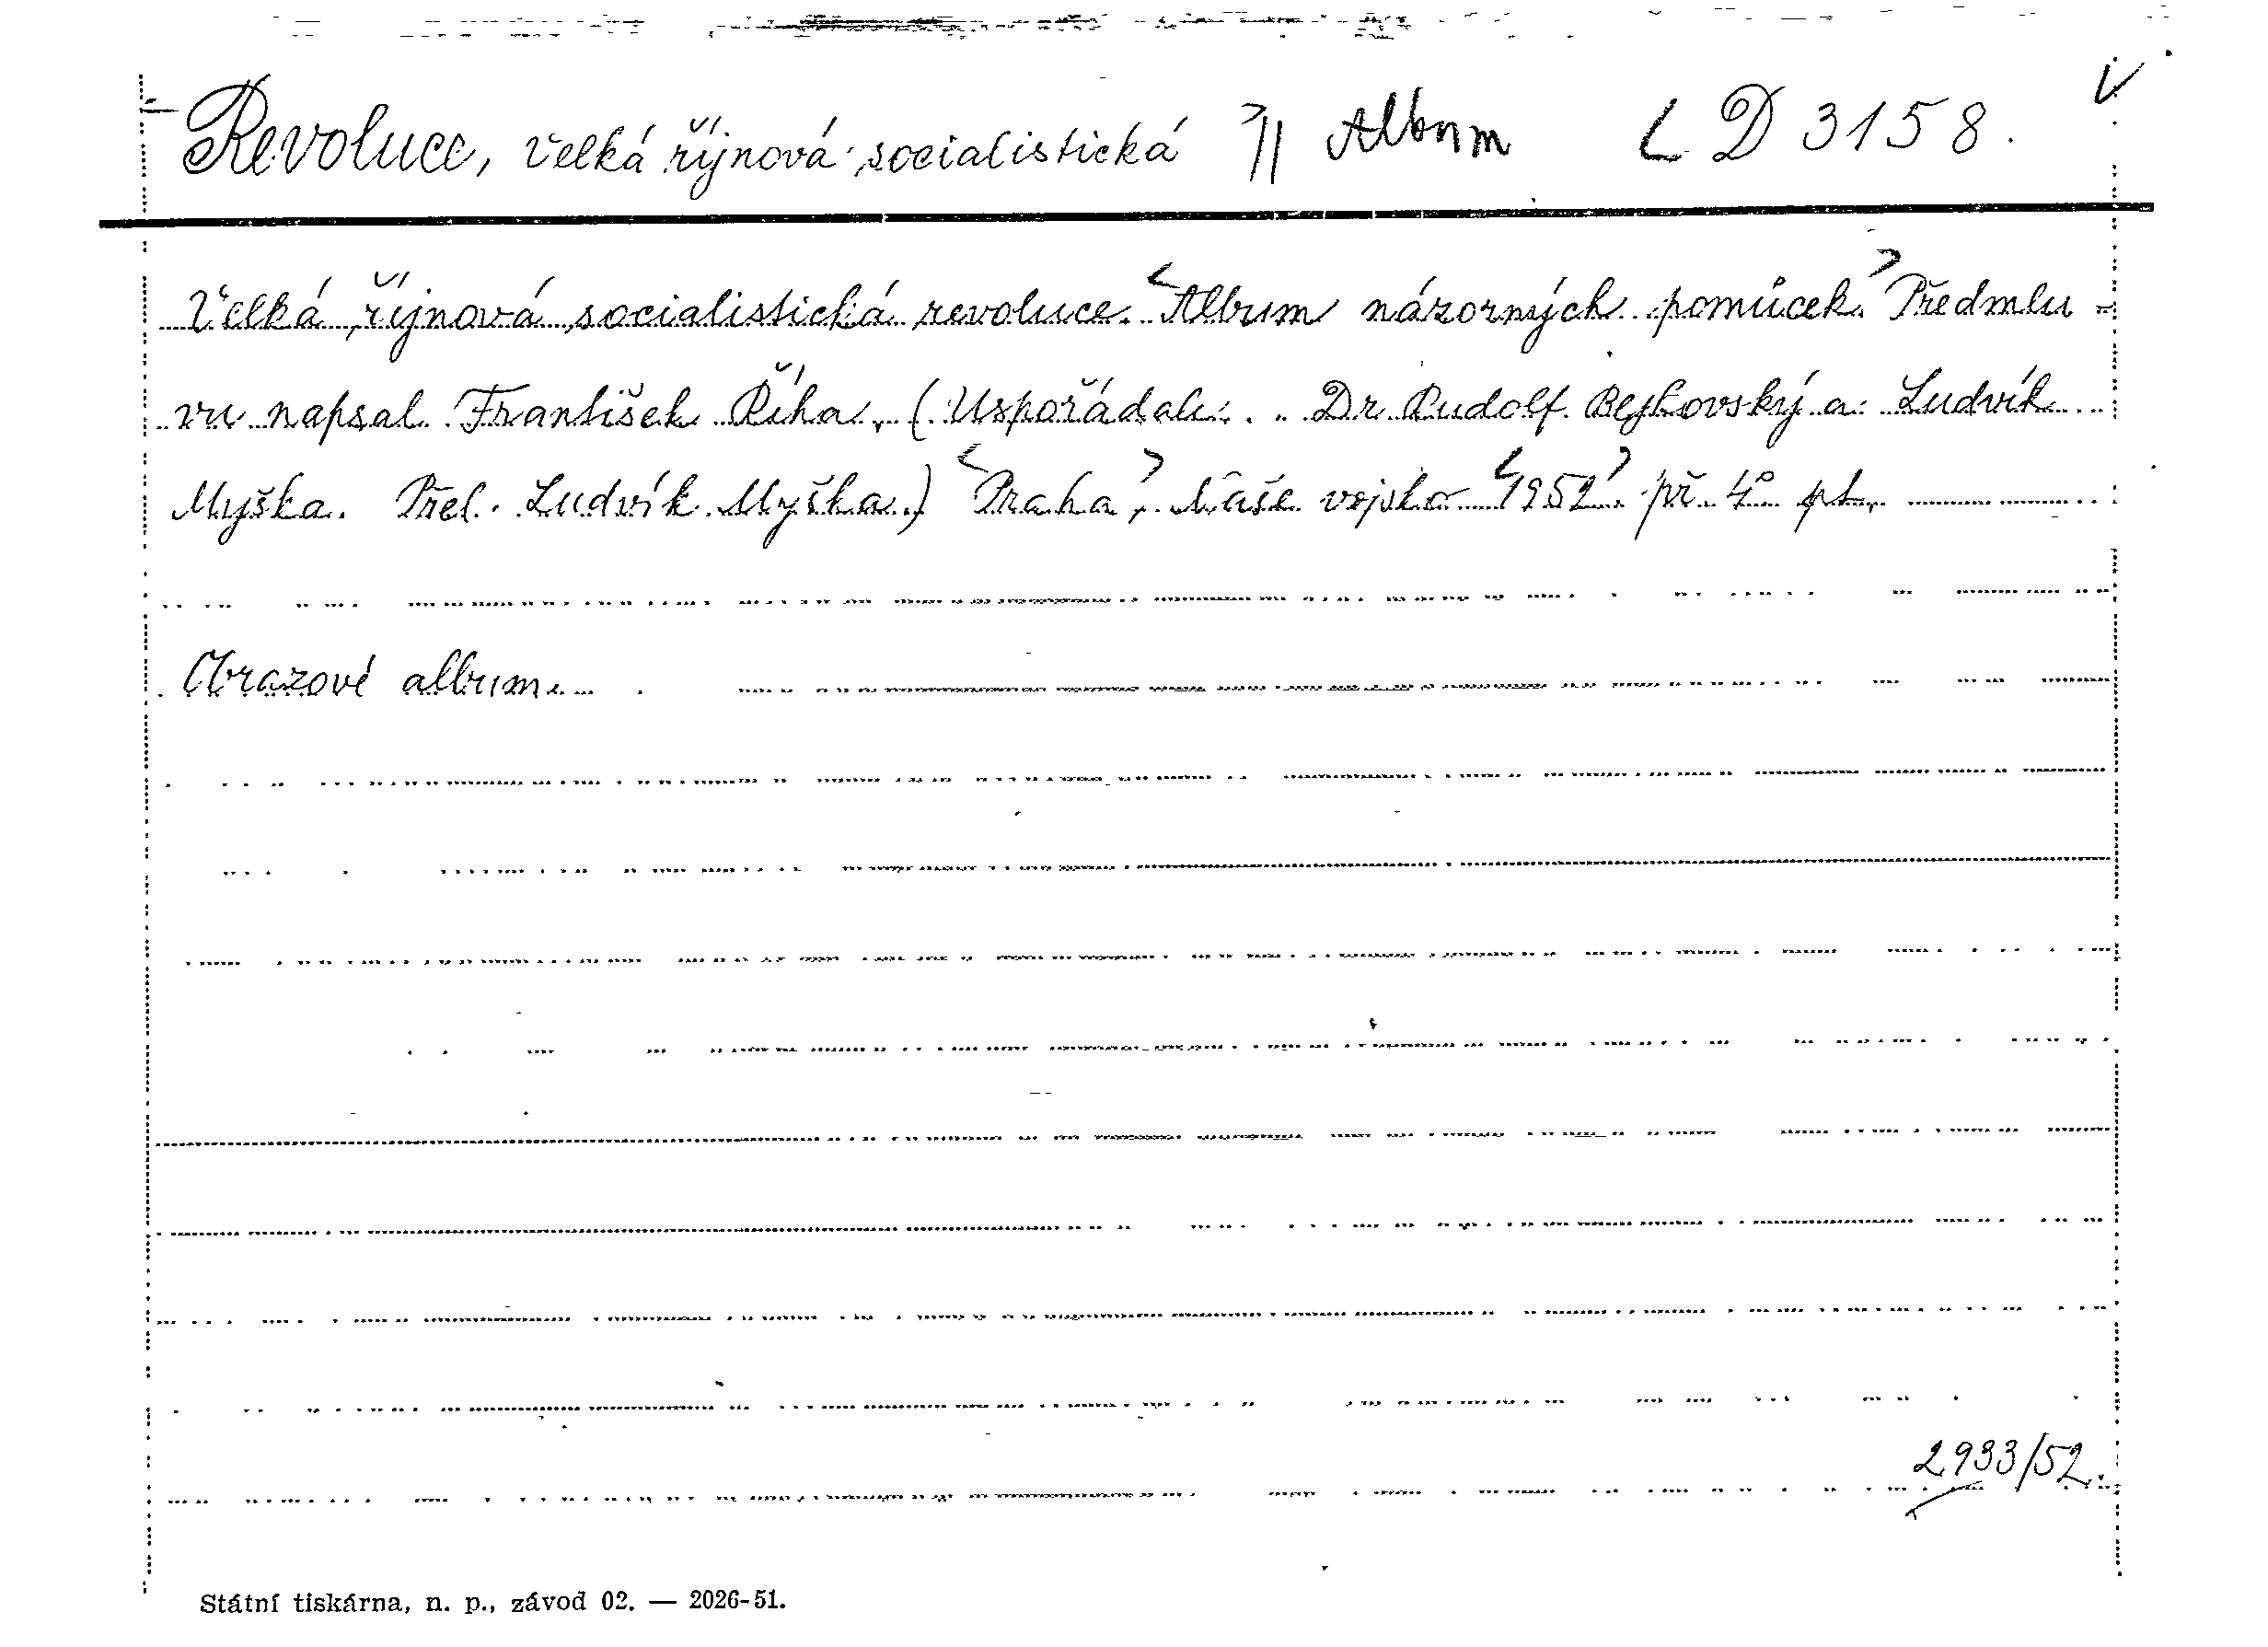 Revoluce, Velká říjnová socialistická || Album L D 3158.
Velká říjnová socialistická revoluce. <Album názorných pomůcek.> Předmlu-
vu napsal František Říha. (Uspořádali: Dr. Rudolf Bejkovský a Ludvík
Myška. Přel. Ludvík Myška.) <Praha>, Naše vojsko <1952> př. 4° pt.
Obrazové album.
2933/52.
Státní tiskárna, n. p., závod 02. — 2026-51.